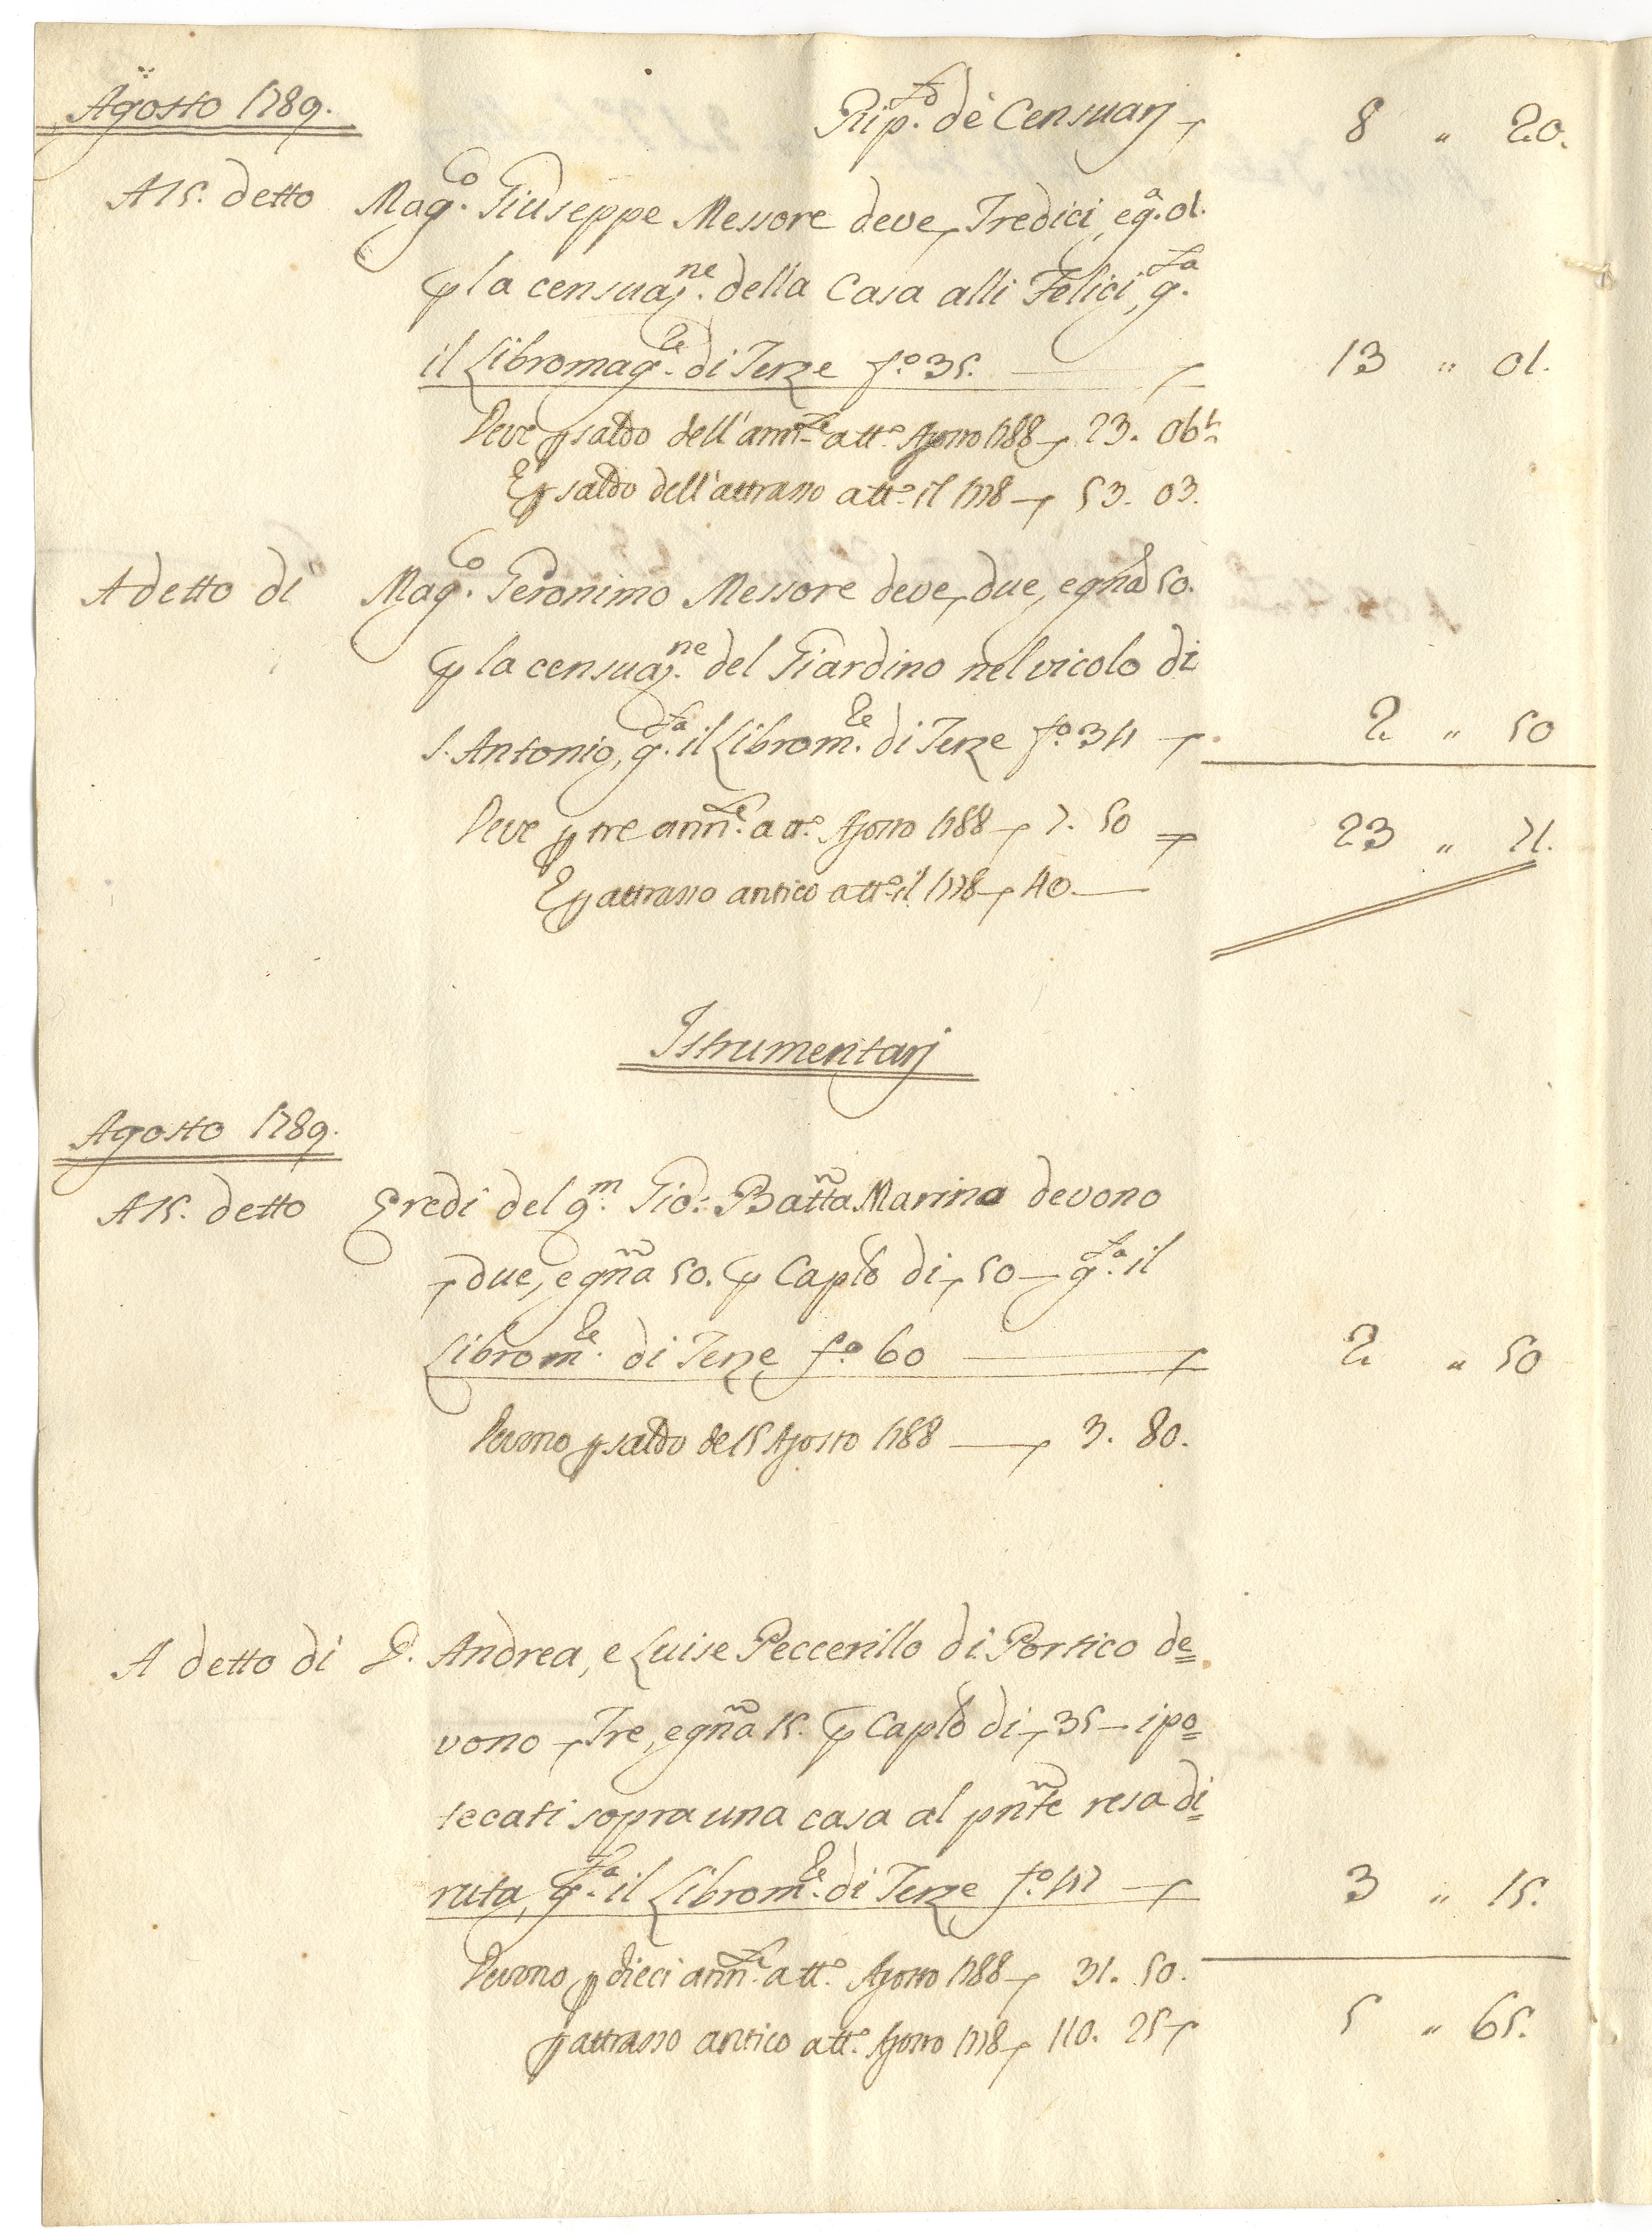 Agosto 1789. Rip.to dè Censuarj 8 " 20.
A 15. detto Mag.co Giuseppe Messore deve Tredici, e g.a 01.
p la censuaz.ne della Casa alli Felici, g.ta
il Libro mag.re di Terze f.o 35. 13 " 01.
Deve p saldo dell'ann.te att.o Agosto 1788 23. 06
E p saldo dell'attrasso att.o il 1778 53. 03.
A detto dì Mag.co Geronimo Messore deve due, e gña 50.
p la censuaz.ne del Giardino nel vicolo di
S. Antonio, g.ta il Libro m.re di Terze f.o 34 2 " 50
Deve p tre ann.te att.o Agosto 1788 7. 50 23 " 71.
E p attrasso antico att.o il 1778 40.
Istrumentarj
Agosto 1789.
A 15. detto Eredi del q.m Gio: Batta Marina devono
due, e gña 50. p Caplõ di 50 g.ta il
Libro m.re di Terze f.o 60 2 " 50
Devono p saldo de 15 Agosto 1788 3. 80.
A detto dì D. Andrea, e Luise Peccerillo di Portico de=
vono Tre, e gña 15. p Caplõ di 35 ipo=
tecati sopra una casa al pñte resa di=
ruta, g.ta il Libro m.re di Terze f.o 47 3 " 15.
Devono p dieci ann.te att.o Agosto 1788 31. 50.
p attrasso antico att.o Agosto 1778 110. 25 5 " 65.